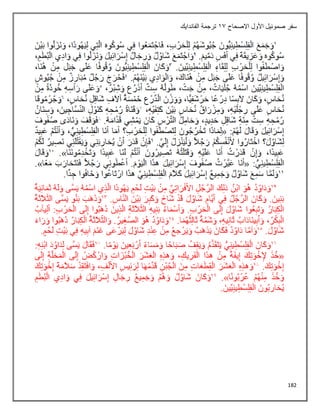 سفر صموئيل الأول الإصحاح ١٧ ترجمة الفاندايك
'وَجَمَعَ الْفِلِسْطِينِيُّونَ جُيُوشَهُمْ لِلْحَرْبِ، فَاجْتَمَعُوا فِي سُوكُوهَ الَّتِي لِيَهُوذَا، وَنَزَلُوا بَيْنَ
سُوكُوهَ وَعَزِيقَةَ فِي أَفَسِ دَمِّيمَ. 'وَاجْتَمَعَ شَاوُلُ وَرِجَالُ إِسْرَائِيلَ وَنَزَلُوا فِي وَادِي الْبُطْمِ،
وَاصْطَفُّوا لِلْحَرْبِ لِلِقَاءِ الْفِلِسْطِينِيِّينَ. 'وَكَانَ الْفِلِسْطِينِيُّونَ وُقُوفًا عَلَى جَبَل مِنْ هُنَا،
وَإِسْرَائِيلُ وُقُوفًا عَلَى جَبَل مِنْ هُنَاكَ، وَالْوَادِي بَيْنَهُمْ. 'فَخَرَجَ رَجُلٌ مُبَارِزٌ مِنْ جُيُوشِ
الْفِلِسْطِينِيِّينَ اسْمُهُ جُلْيَاتُ، مِنْ جَتَّ، طُولُهُ سِتُّ أَذْرُعٍ وَشِبْرٌ، 'وَعَلَى رَأْسِهِ خُوذَةٌ مِنْ
نُحَاسٍ، وَكَانَ لاَبِسًا دِرْعًا حَرْشَفِيًّا، وَوَزْنُ الدِّرْعِ خَمْسَةُ آلاَفِ شَاقِلِ نُحَاسٍ، 'وَجُرْمُوقَا
نُحَاسٍ عَلَى رِجْلَيْهِ، وَمِزْرَاقُ نُحَاسٍ بَيْنَ كَتِفَيْهِ، 'وَقَنَاةُ رُمْحِهِ كَنَوْلِ النَّسَّاجِينَ، وَسِنَانُ
رُمْحِهِ سِتُّ مِئَةِ شَاقِلِ حَدِيدٍ، وَحَامِلُ التُّرْسِ كَانَ يَمْشِي قُدَّامَهُ. 'فَوَقَفَ وَنَادَى صُفُوفَ
إِسْرَائِيلَ وَقَالَ لَهُمْ: «لِمَاذَا تَخْرُجُونَ لِتَصْطَفُّوا لِلْحَرْبِ؟ أَمَا أَنَا الْفِلِسْطِينِيُّ، وَأَنْتُمْ عَبِيدٌ
لِشَاوُلَ؟ اخْتَارُوا لأَنْفُسِكُمْ رَجُلاً وَلْيَنْزِلْ إِلَيَّ. 'فَإِنْ قَدَرَ أَنْ يُحَارِبَنِي وَيَقْتُلَنِي نَصِيرُ لَكُمْ
عَبِيدًا. وَإِنْ قَدَرْتُ أَنَا عَلَيْهِ وَقَتَلْتُهُ تَصِيرُونَ أَنْتُمْ لَنَا عَبِيدًا وَتَخْدِمُونَنَا». ''وَقَالَ
الْفِلِسْطِينِيُّ: «أَنَا عَيَّرْتُ صُفُوفَ إِسْرَائِيلَ هذَا الْيَوْمَ. أَعْطُونِي رَجُلاً فَنَتَحَارَبَ مَعًا».
''وَلَمَّا سَمِعَ شَاوُلُ وَجَمِيعُ إِسْرَائِيلَ كَلاَمَ الْفِلِسْطِينِيِّ هذَا ارْتَاعُوا وَخَافُوا جِدًّا.
''وَدَاوُدُ هُوَ ابْنُ ذلِكَ الرَّجُلِ الأَفْرَاتِيِّ مِنْ بَيْتِ لَحْمِ يَهُوذَا الَّذِي اسْمُهُ يَسَّى وَلَهُ ثَمَانِيَةُ
بَنِينَ. وَكَانَ الرَّجُلُ فِي أَيَّامِ شَاوُلَ قَدْ شَاخَ وَكَبِرَ بَيْنَ النَّاسِ. ''وَذَهَبَ بَنُو يَسَّى الثَّلاَثَةُ
الْكِبَارُ وَتَبِعُوا شَاوُلَ إِلَى الْحَرْبِ. وَأَسْمَاءُ بَنِيهِ الثَّلاَثَةِ الَّذِينَ ذَهَبُوا إِلَى الْحَرْبِ: أَلِيآبُ
الْبِكْرُ، وَأَبِينَادَابُ ثَانِيهِ، وَشَمَّةُ ثَالِثُهُمَا. ''وَدَاوُدُ هُوَ الصَّغِيرُ. وَالثَّلاَثَةُ الْكِبَارُ ذَهَبُوا وَرَاءَ
شَاوُلَ. ''وَأَمَّا دَاوُدُ فَكَانَ يَذْهَبُ وَيَرْجعُ مِنْ عِنْدِ شَاوُلَ لِيَرْعَى غَنَمَ أَبِيهِ فِي بَيْتِ لَحْمٍ.
''وَكَانَ الْفِلِسْطِينِيُّ يَتَقَدَّمُ وَيَقِفُ صَبَاحًا وَمَسَاءً أَرْبَعِينَ يَوْمًا. ''فَقَالَ يَسَّى لِدَاوُدَ ابْنِهِ:
«خُذْ لإِخْوَتِكَ إِيفَةً مِنْ هذَا الْفَرِيكِ، وَهذِهِ الْعَشَرَ الْخُبْزَاتِ وَارْكُضْ إِلَى الْمَحَلَّةِ إِلَى
إِخْوَتِكَ. ''وَهذِهِ الْعَشَرَ الْقِطْعَاتِ مِنَ الْجُبْنِ قَدِّمْهَا لِرَئِيسِ الأَلْفِ، وَافْتَقِدْ سَلاَمَةَ إِخْوَتِكَ
وَخُذْ مِنْهُمْ عُرْبُونًا». ''وَكَانَ شَاوُلُ وَهُمْ وَجَمِيعُ رِجَالِ إِسْرَائِيلَ فِي وَادِي الْبُطْمِ
يُحَارِبُونَ الْفِلِسْطِينِيِّينَ.
182